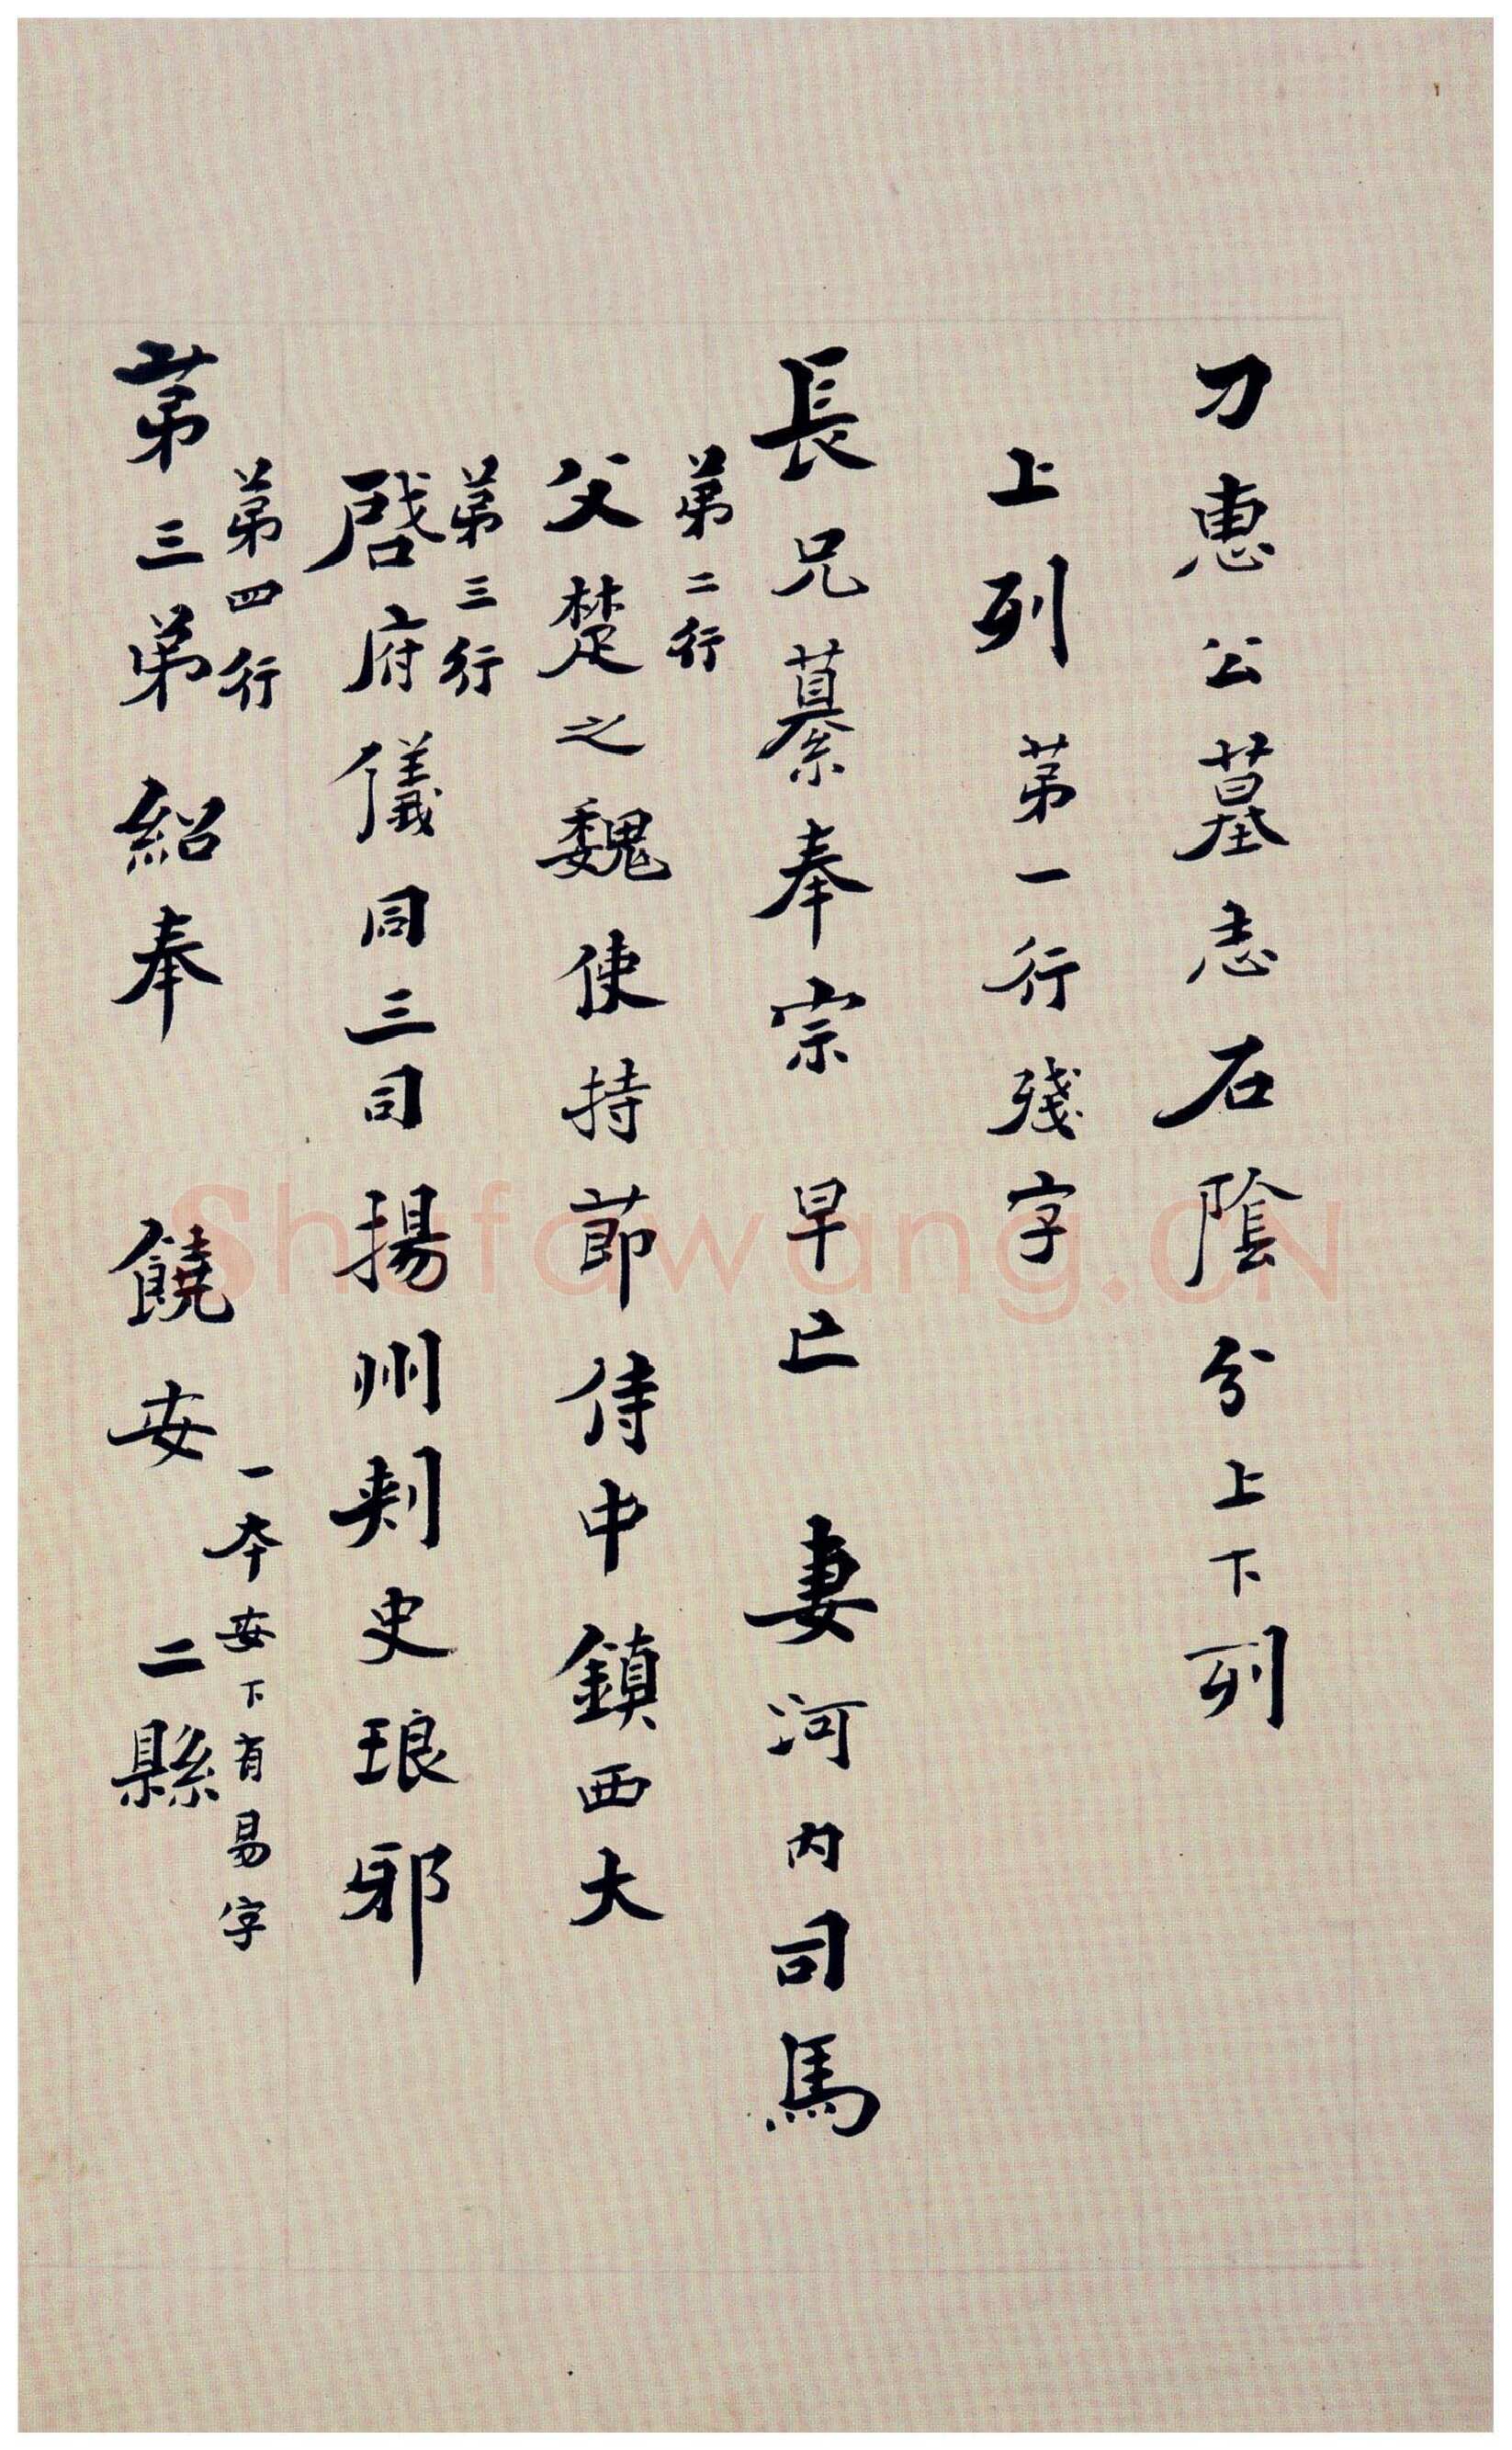 刀惠公墓志石陰分上下列
上列 苐一行殘字
長兄纂奉宗 早亡 妻河内司馬
苐二行
父楚之魏使持節侍中鎮西大
苐三行
啓府儀同三司揚州刺史琅邪
苐四行
苐三弟紹奉 饒安 二縣
一本安下有易字
Shufawang.CN